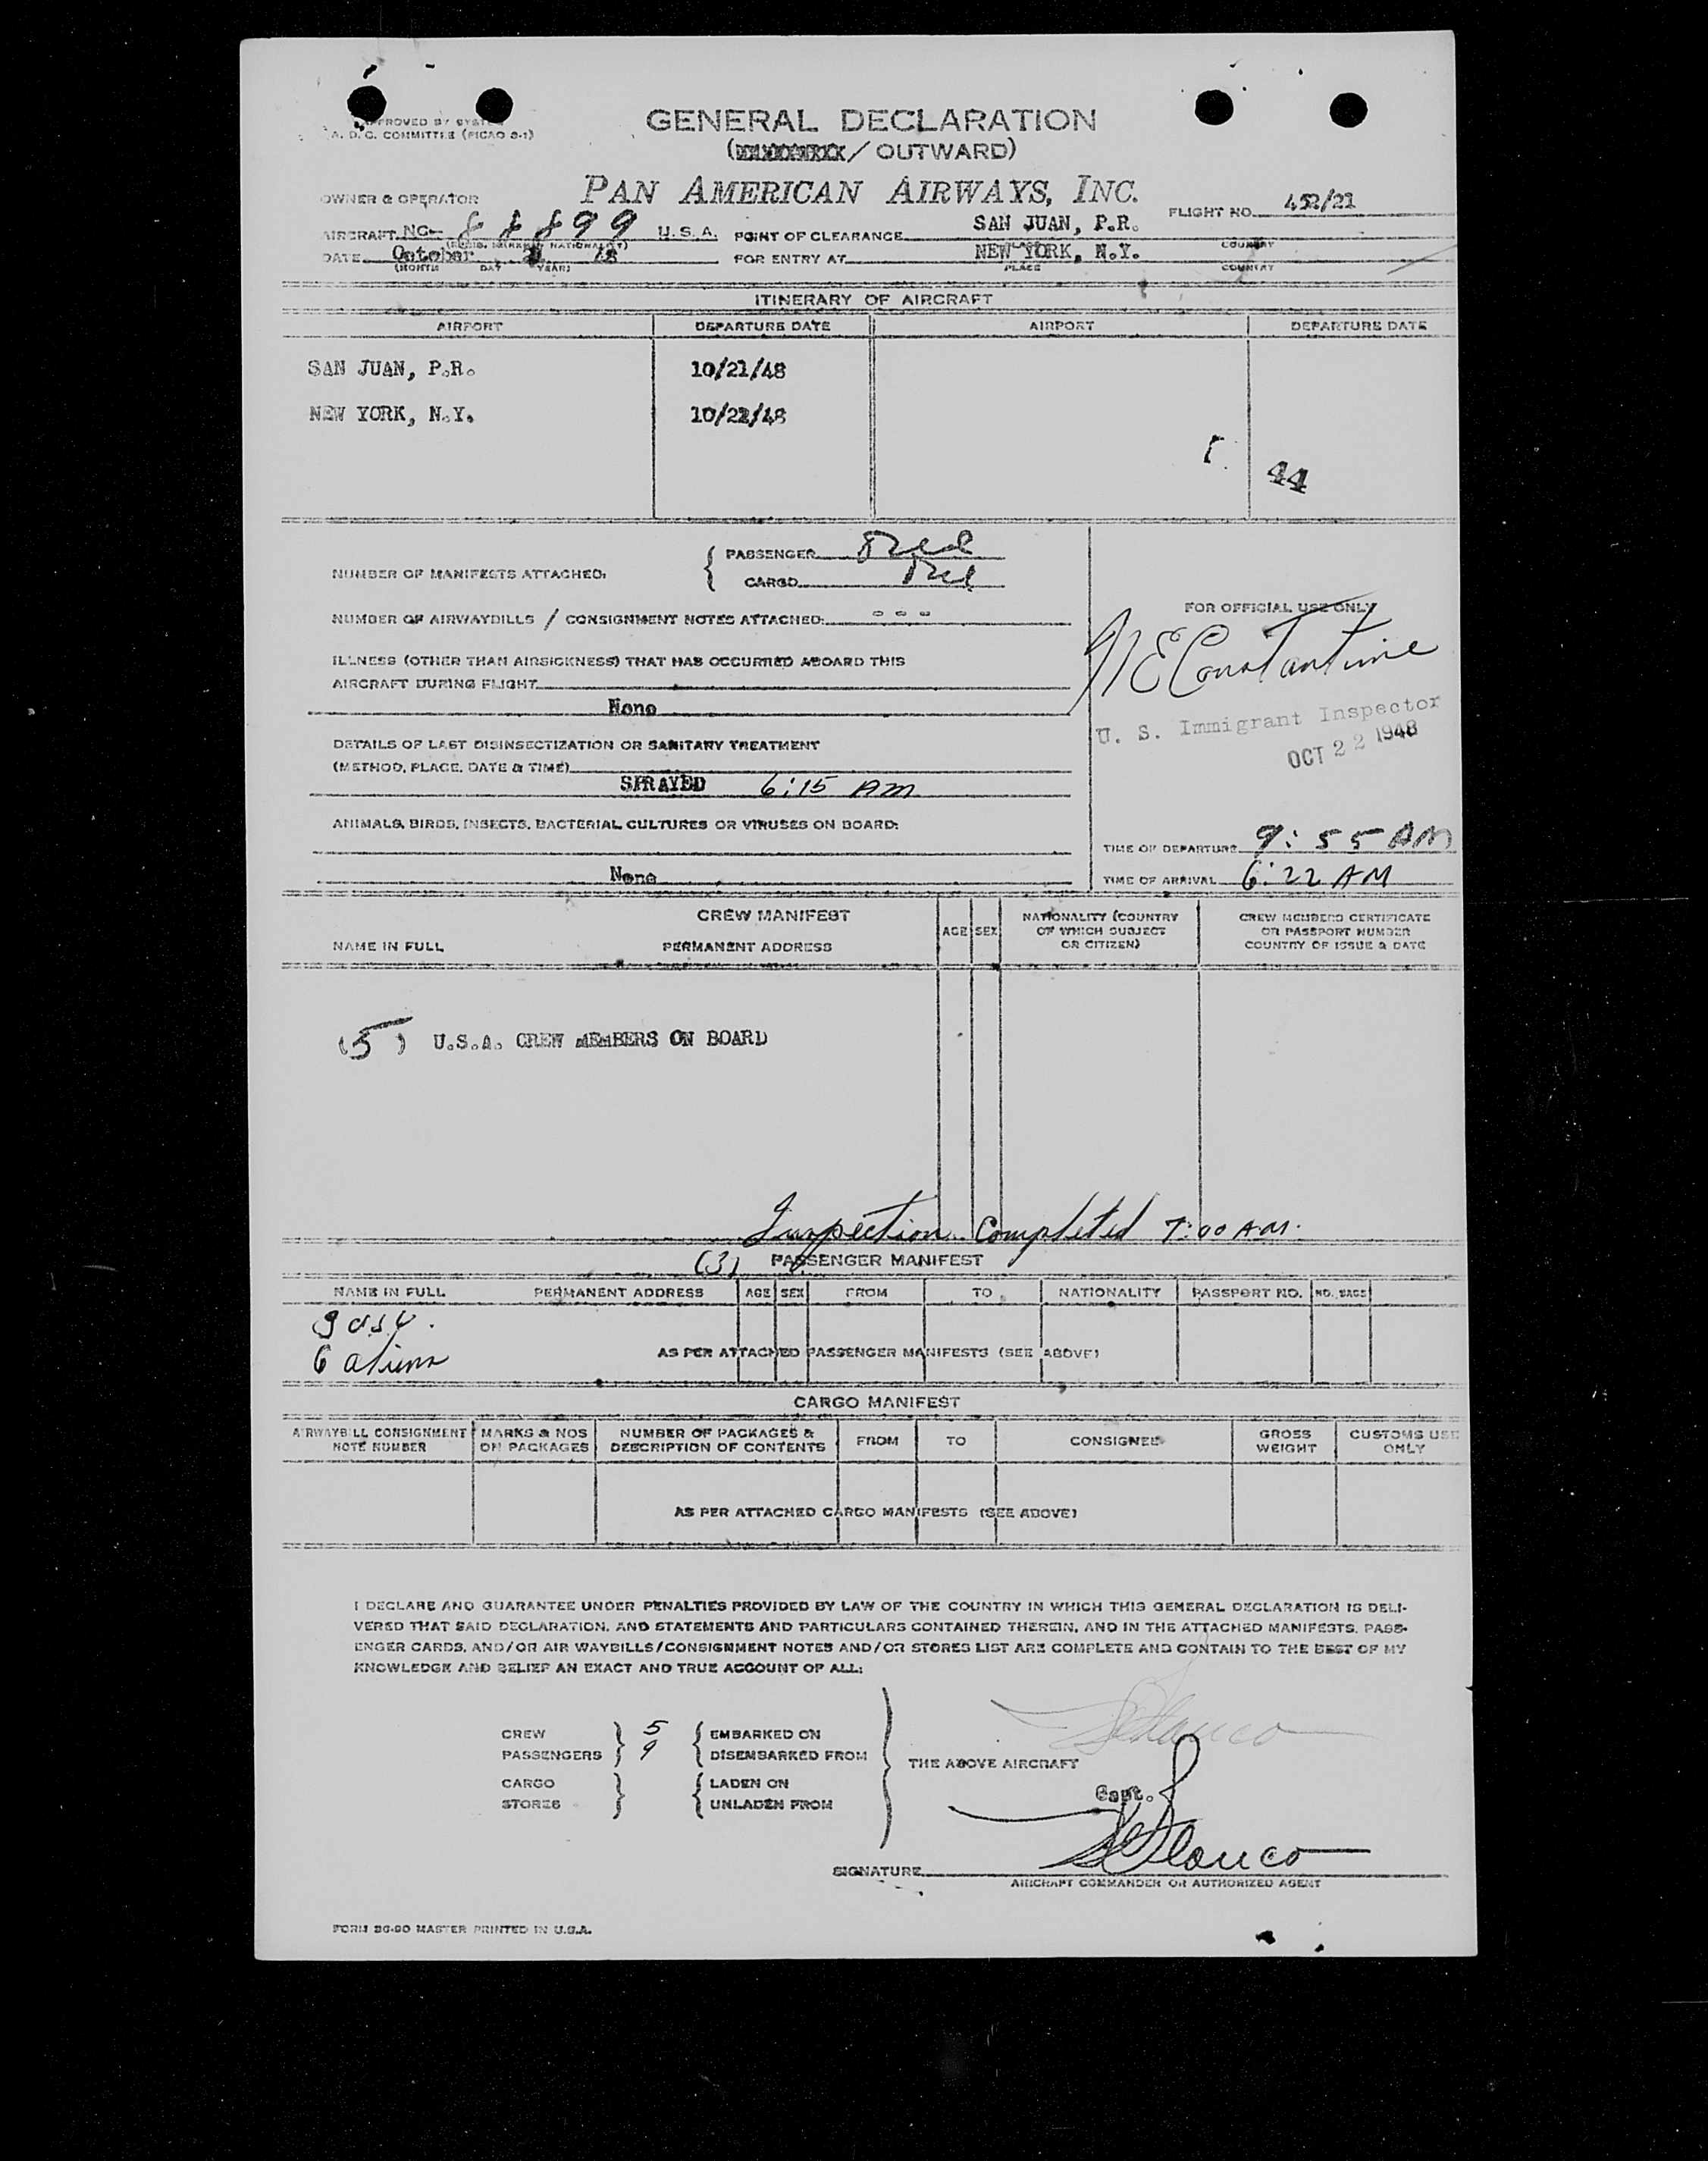 APPROVED BY SYSTEM
A. D. C. COMMITTEE (PICAO S-1)
GENERAL DECLARATION
(/ OUTWARD)
OWNER & OPERATOR PAN AMERICAN AIRWAYS, INC.
FLIGHT NO. 452/21
AIRCRAFT NC- 88899 U.S.A. POINT OF CLEARANCE SAN JUAN, P.R.
COUNTRY
DATE October FOR ENTRY AT NEW YORK, N.Y.
(MONTH DAY YEAR) PLACE COUNTRY
ITINERARY OF AIRCRAFT
AIRPORT DEPARTURE DATE AIRPORT DEPARTURE DATE
SAN JUAN, P.R. 10/21/48
NEW YORK, N.Y. 10/22/48
44
NUMBER OF MANIFESTS ATTACHED: { PASSENGER
CARGO
NUMBER OF AIRWAYBILLS / CONSIGNMENT NOTES ATTACHED: - - -
ILLNESS (OTHER THAN AIRSICKNESS) THAT HAS OCCURRED ABOARD THIS
AIRCRAFT DURING FLIGHT
None
DETAILS OF LAST DISINSECTIZATION OR SANITARY TREATMENT
(METHOD, PLACE, DATE & TIME)
SPRAYED 6:15 AM
ANIMALS, BIRDS, INSECTS, BACTERIAL CULTURES OR VIRUSES ON BOARD:
None
FOR OFFICIAL USE ONLY
NE Constantine
U. S. Immigrant Inspector
OCT 22 1948
TIME OF DEPARTURE 9:55 AM
TIME OF ARRIVAL 6:22 AM
CREW MANIFEST
NAME IN FULL PERMANENT ADDRESS AGE SEX NATIONALITY (COUNTRY OF WHICH SUBJECT OR CITIZEN) CREW MEMBERS CERTIFICATE OR PASSPORT NUMBER COUNTRY OF ISSUE & DATE
(5) U.S.A. CREW MEMBERS ON BOARD
Inspection Completed 7:00 AM.
(3) PASSENGER MANIFEST
NAME IN FULL PERMANENT ADDRESS AGE SEX FROM TO NATIONALITY PASSPORT NO. NO. BAGS
6 aliens
AS PER ATTACHED PASSENGER MANIFESTS (SEE ABOVE)
CARGO MANIFEST
AIRWAYBILL CONSIGNMENT NOTE NUMBER MARKS & NOS ON PACKAGES NUMBER OF PACKAGES & DESCRIPTION OF CONTENTS FROM TO CONSIGNEE GROSS WEIGHT CUSTOMS USE ONLY
AS PER ATTACHED CARGO MANIFESTS (SEE ABOVE)
I DECLARE AND GUARANTEE UNDER PENALTIES PROVIDED BY LAW OF THE COUNTRY IN WHICH THIS GENERAL DECLARATION IS DELI-
VERED THAT SAID DECLARATION, AND STATEMENTS AND PARTICULARS CONTAINED THEREIN, AND IN THE ATTACHED MANIFESTS, PASS-
ENGER CARDS, AND/OR AIR WAYBILLS/CONSIGNMENT NOTES AND/OR STORES LIST ARE COMPLETE AND CONTAIN TO THE BEST OF MY
KNOWLEDGE AND BELIEF AN EXACT AND TRUE ACCOUNT OF ALL:
CREW } 5 { EMBARKED ON
PASSENGERS } 9 { DISEMBARKED FROM
THE ABOVE AIRCRAFT
CARGO } { LADEN ON
STORES } { UNLADEN FROM
Capt.
SIGNATURE
AIRCRAFT COMMANDER OR AUTHORIZED AGENT
FORM SG-90 MASTER PRINTED IN U.S.A.